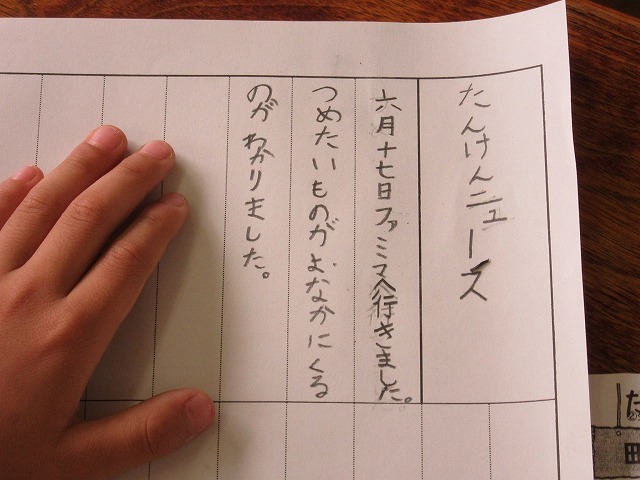 たんけんニュース
六月十七日ファミマへ行きました。
つめたいものがよなかにくる
のがわかりました。
た
田